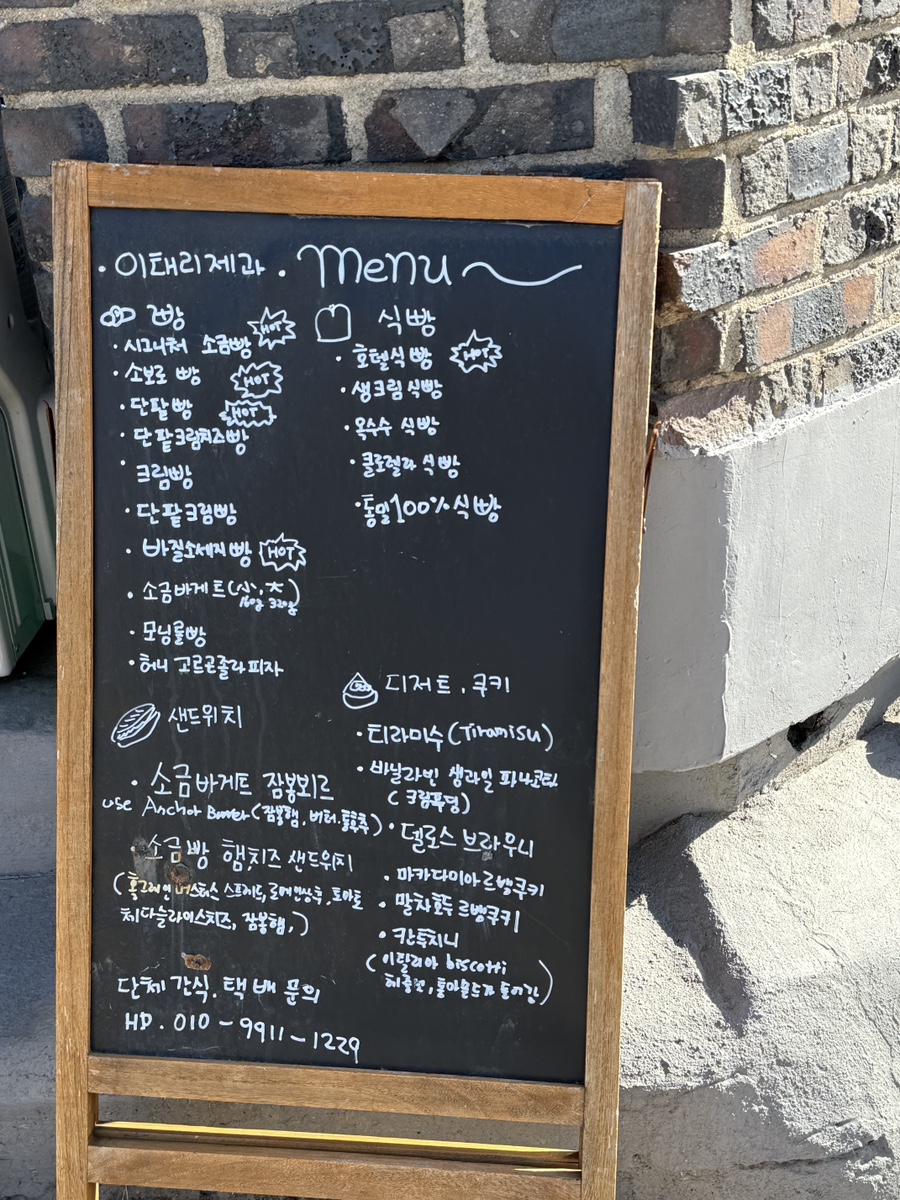 · 이태리제과 · Menu
빵
· 시그니처 소금빵 HOT
· 소보로 빵 HOT
· 단팥빵 HOT
· 단팥크림치즈빵
· 크림빵
· 단팥크림빵
· 바질소세지빵 HOT
· 소금바게트(小,大)
160g 320g
· 모닝롤빵
· 허니 고르곤졸라피자
샌드위치
· 소금바게트 잠봉뵈르
use Anchor Butter(잠봉햄, 버터, 통후추)
· 소금빵 햄치즈 샌드위치
(홀그레인 머스터드 스프레드, 로메인상추, 토마토
체다슬라이스치즈, 잠봉햄,)
단체 간식. 택배 문의
HD. 010-9911-1229
식빵
· 호텔식빵 HOT
· 생크림 식빵
· 옥수수 식빵
· 클로렐라 식빵
· 통밀100% 식빵
디저트. 쿠키
· 티라미수(Tiramisu)
· 바닐라빈 생과일 파나코타
(크림푸딩)
· 델로스 브라우니
· 마카다미아르뱅쿠키
· 말차호두 르뱅쿠키
· 칸투치니
(이탈리아 biscotti
통아몬드가 들어간)